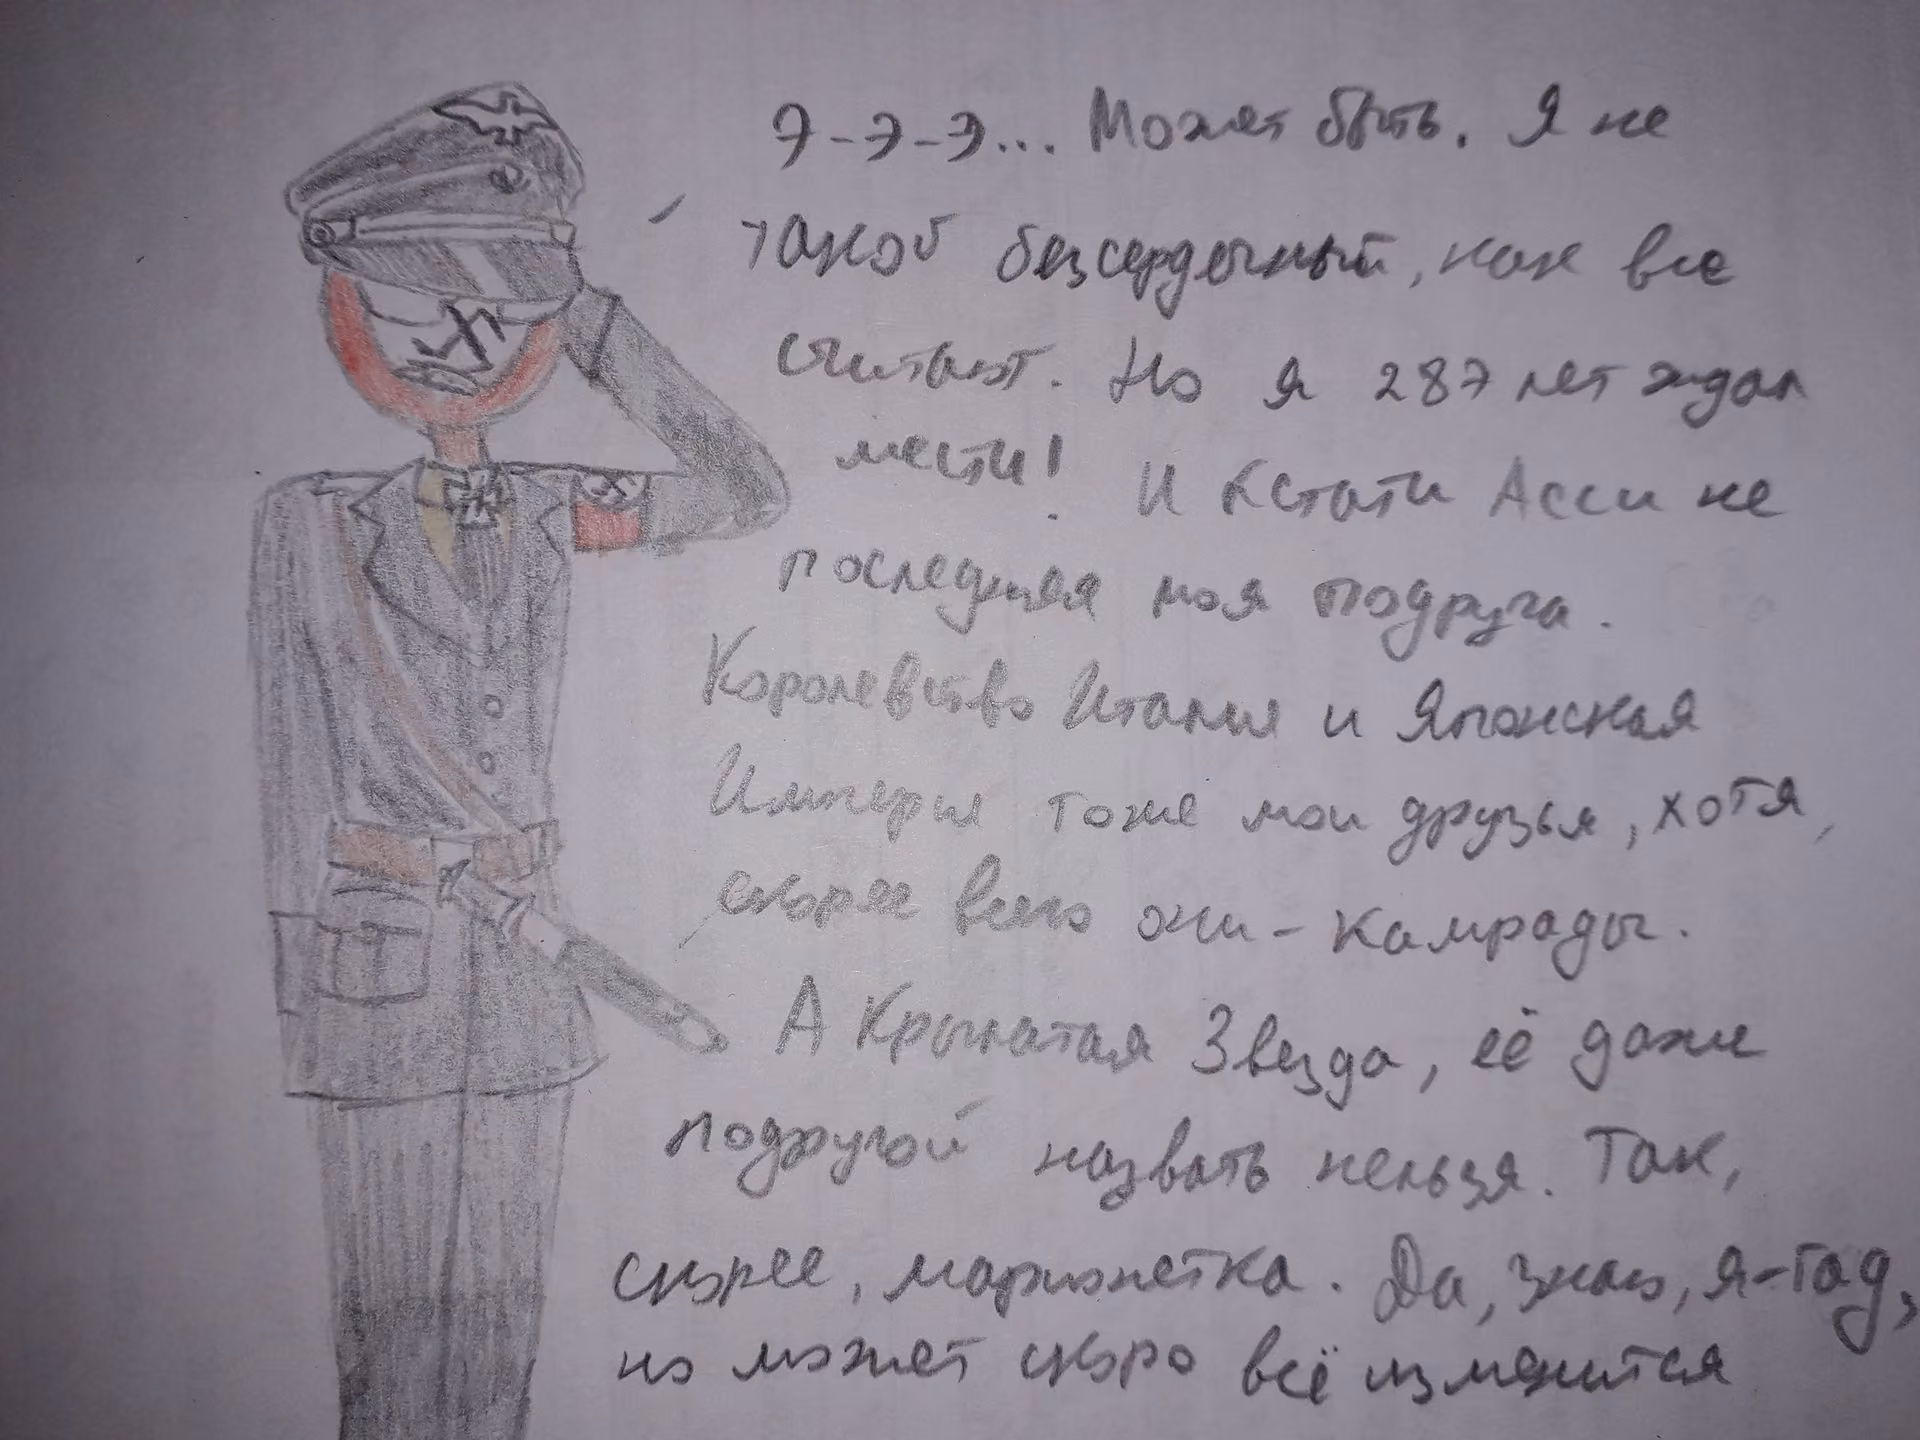 Э-Э-Э... Может быть. Я не
такой безсердечный, как все
считают. Но я 287 лет ждал
мести! И кстати Асси не
последняя моя подруга.
Королевство Италия и Японская
Империя тоже мои друзья, хотя,
скорее всего они - камрады.
А Крылатая Звезда, её даже
подругой назвать нельзя. Так,
скорее, марионетка. Да, знаю, я-гад,
но может скоро всё изменится